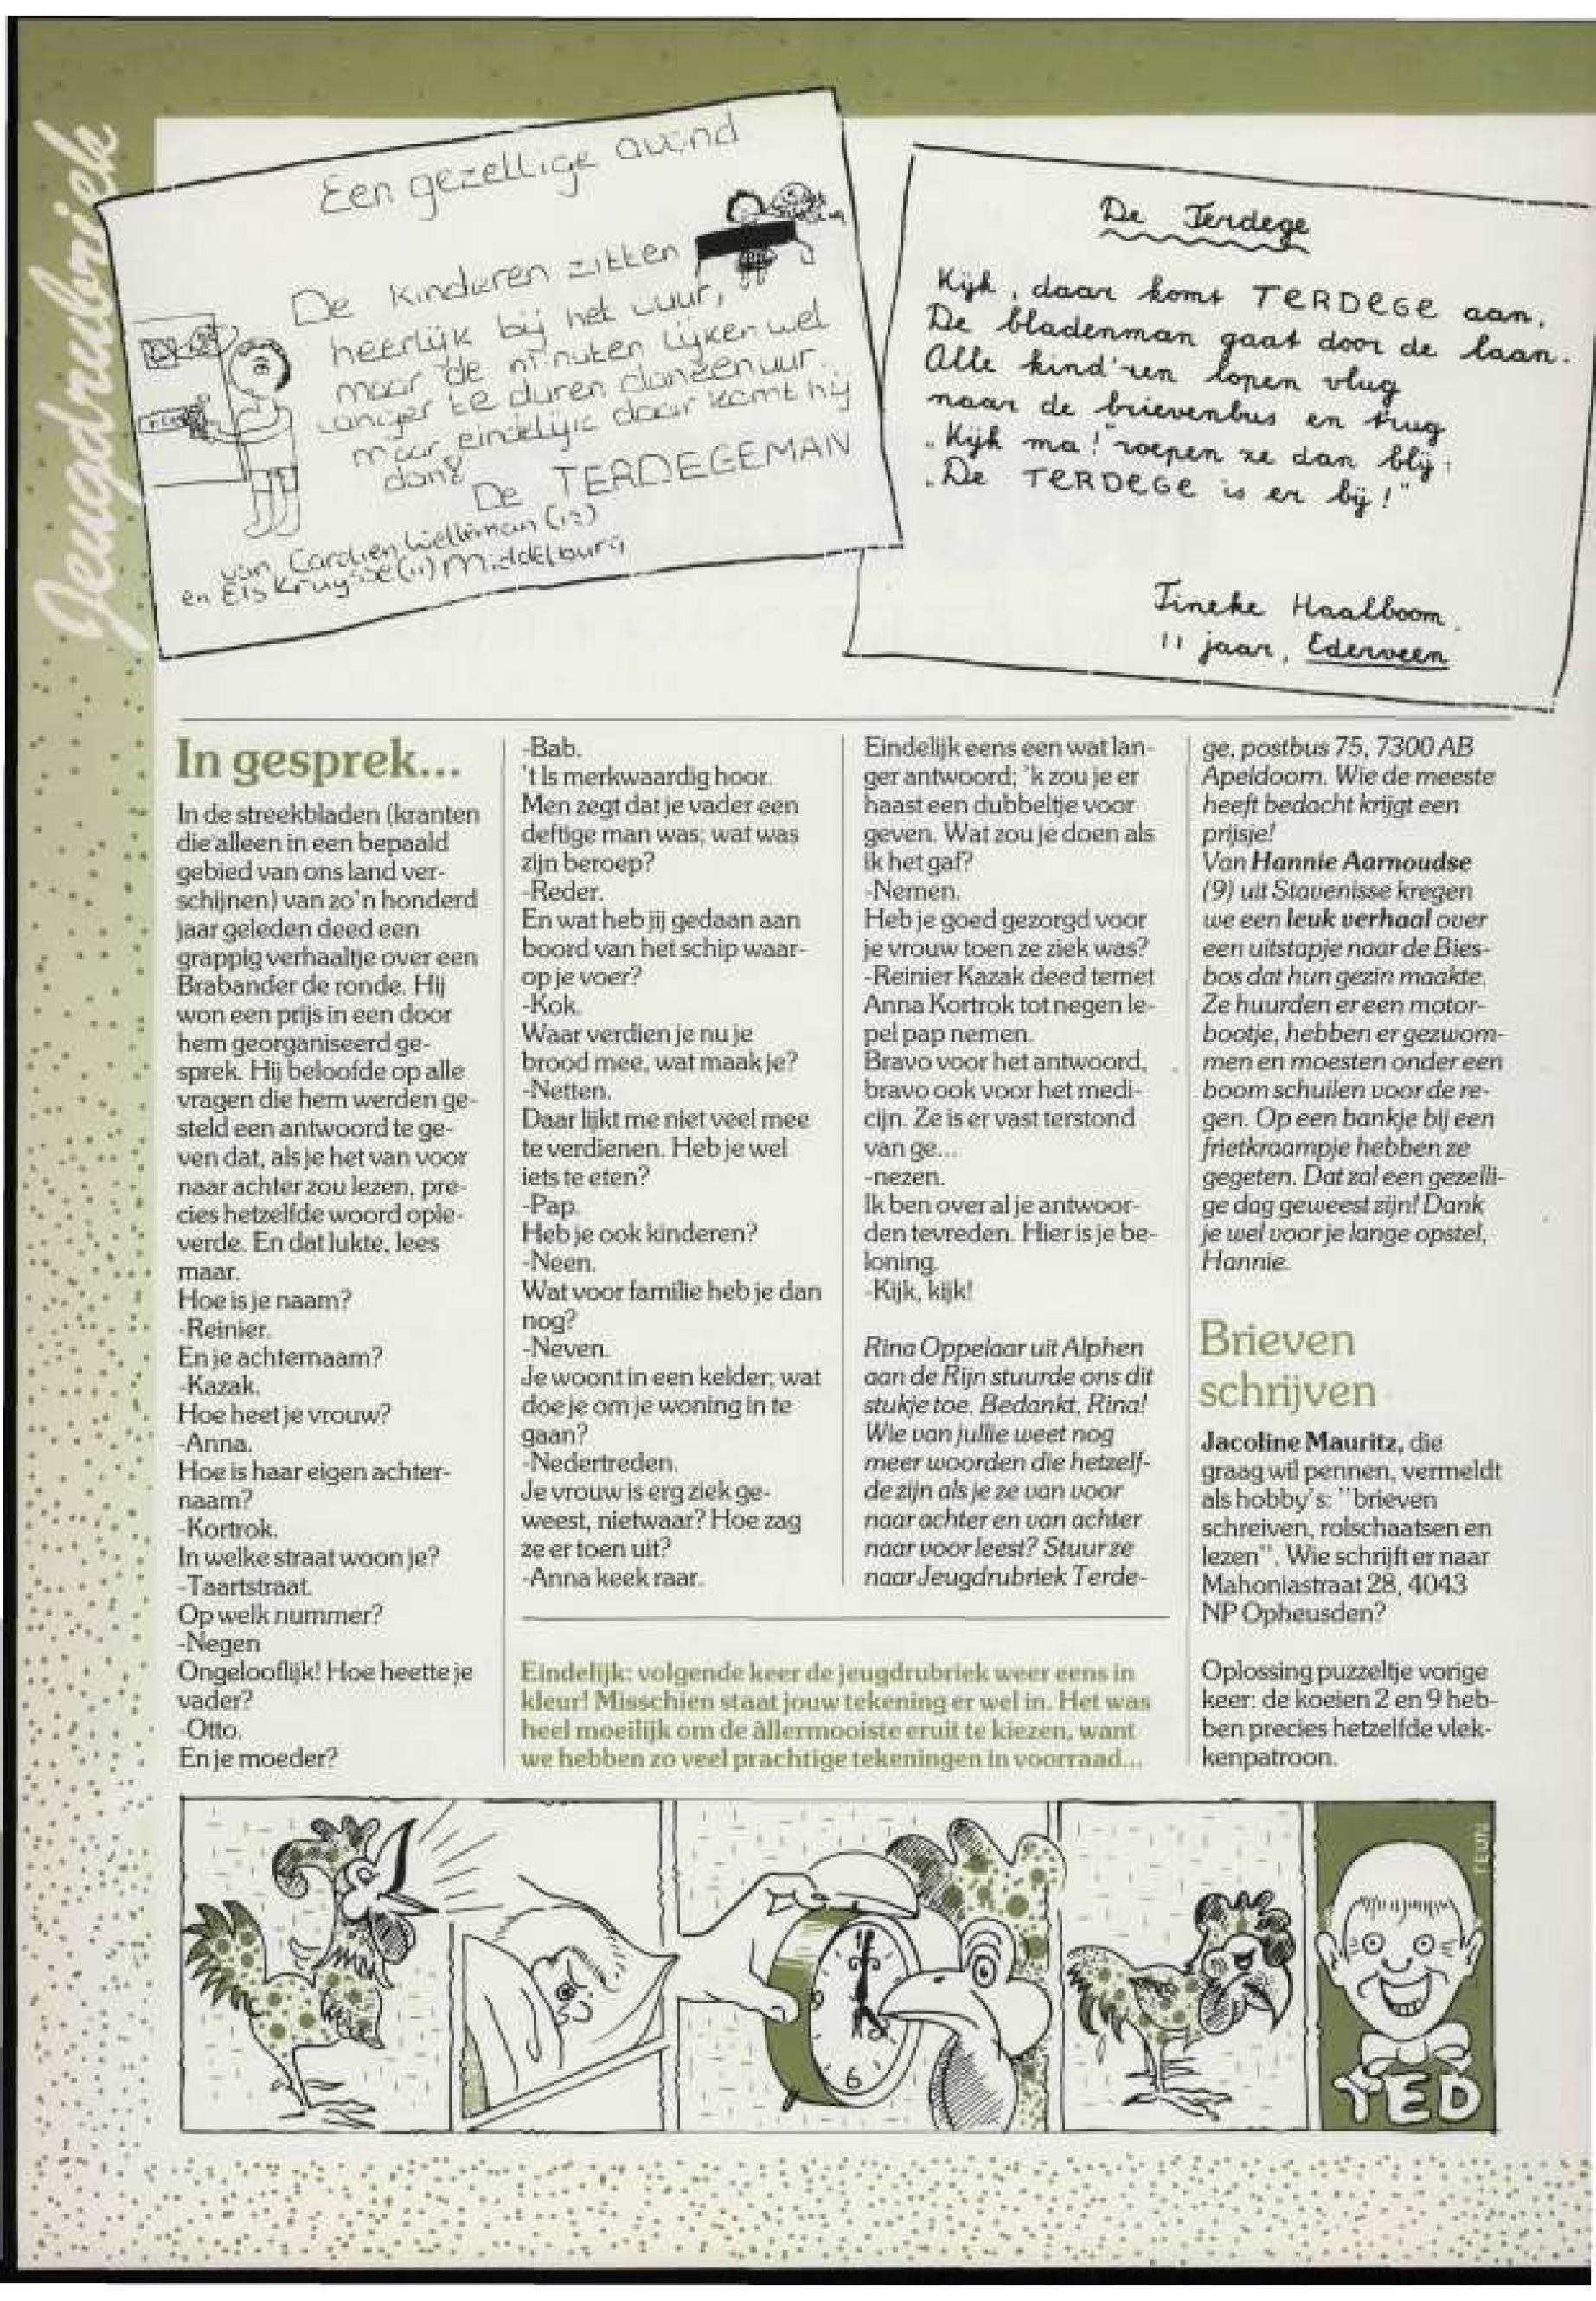 Jeugdrubriek
Een gezellige avond
De kinderen zitten
heerlijk bij het vuur,
maar de minuten lijken wel
langer te duren dan een uur.
maar eindelijk daar komt hij
dan:
De TERDEGEMAN
van Cardien Welleman (12)
en Els Kruysse (11) Middelburg
De Terdege
Kijk, daar komt TERDEGE aan.
De bladenman gaat door de laan.
Alle kind'ren lopen vlug
naar de brievenbus en trug
„Kijk ma!" roepen ze dan blij:
„De TERDEGE is er bij!"
Tineke Haalboom.
11 jaar, Ederveen
In gesprek...
In de streekbladen (kranten
die alleen in een bepaald
gebied van ons land ver-
schijnen) van zo'n honderd
jaar geleden deed een
grappig verhaaltje over een
Brabander de ronde. Hij
won een prijs in een door
hem georganiseerd ge-
sprek. Hij beloofde op alle
vragen die hem werden ge-
steld een antwoord te ge-
ven dat, als je het van voor
naar achter zou lezen, pre-
cies hetzelfde woord ople-
verde. En dat lukte, lees
maar.
Hoe is je naam?
-Reinier.
En je achternaam?
-Kazak.
Hoe heet je vrouw?
-Anna.
Hoe is haar eigen achter-
naam?
-Kortrok.
In welke straat woon je?
-Taartstraat.
Op welk nummer?
-Negen
Ongelooflijk! Hoe heette je
vader?
-Otto.
En je moeder?
-Bab.
't Is merkwaardig hoor.
Men zegt dat je vader een
deftige man was; wat was
zijn beroep?
-Reder.
En wat heb jij gedaan aan
boord van het schip waar-
op je voer?
-Kok.
Waar verdien je nu je
brood mee, wat maak je?
-Netten.
Daar lijkt me niet veel mee
te verdienen. Heb je wel
iets te eten?
-Pap.
Heb je ook kinderen?
-Neen.
Wat voor familie heb je dan
nog?
-Neven.
Je woont in een kelder; wat
doe je om je woning in te
gaan?
-Nedertreden.
Je vrouw is erg ziek ge-
weest, nietwaar? Hoe zag
ze er toen uit?
-Anna keek raar.
Eindelijk eens een wat lan-
ger antwoord; 'k zou je er
haast een dubbeltje voor
geven. Wat zou je doen als
ik het gaf?
-Nemen.
Heb je goed gezorgd voor
je vrouw toen ze ziek was?
-Reinier Kazak deed temet
Anna Kortrok tot negen le-
pel pap nemen.
Bravo voor het antwoord,
bravo ook voor het medi-
cijn. Ze is er vast terstond
van ge...
-nezen.
Ik ben over al je antwoor-
den tevreden. Hier is je be-
loning.
-Kijk, kijk!
Rina Oppelaar uit Alphen
aan de Rijn stuurde ons dit
stukje toe. Bedankt, Rina!
Wie van jullie weet nog
meer woorden die hetzelf-
de zijn als je ze van voor
naar achter en van achter
naar voor leest? Stuur ze
naar Jeugdrubriek Terde-
ge, postbus 75, 7300 AB
Apeldoorn. Wie de meeste
heeft bedacht krijgt een
prijsje!
Van Hannie Aarnoudse
(9) uit Stavenisse kregen
we een leuk verhaal over
een uitstapje naar de Bies-
bos dat hun gezin maakte.
Ze huurden er een motor-
bootje, hebben er gezwom-
men en moesten onder een
boom schuilen voor de re-
gen. Op een bankje bij een
frietkraampje hebben ze
gegeten. Dat zal een gezelli-
ge dag geweest zijn! Dank
je wel voor je lange opstel,
Hannie.
Brieven
schrijven
Jacoline Mauritz, die
graag wil pennen, vermeldt
als hobby's: "brieven
schreiven, rolschaatsen en
lezen". Wie schrijft er naar
Mahoniastraat 28, 4043
NP Opheusden?
Oplossing puzzeltje vorige
keer: de koeien 2 en 9 heb-
ben precies hetzelfde vlek-
kenpatroon.
Eindelijk: volgende keer de jeugdrubriek weer eens in
kleur! Misschien staat jouw tekening er wel in. Het was
heel moeilijk om de állermooiste eruit te kiezen, want
we hebben zo veel prachtige tekeningen in voorraad...
6
TEUN
TED